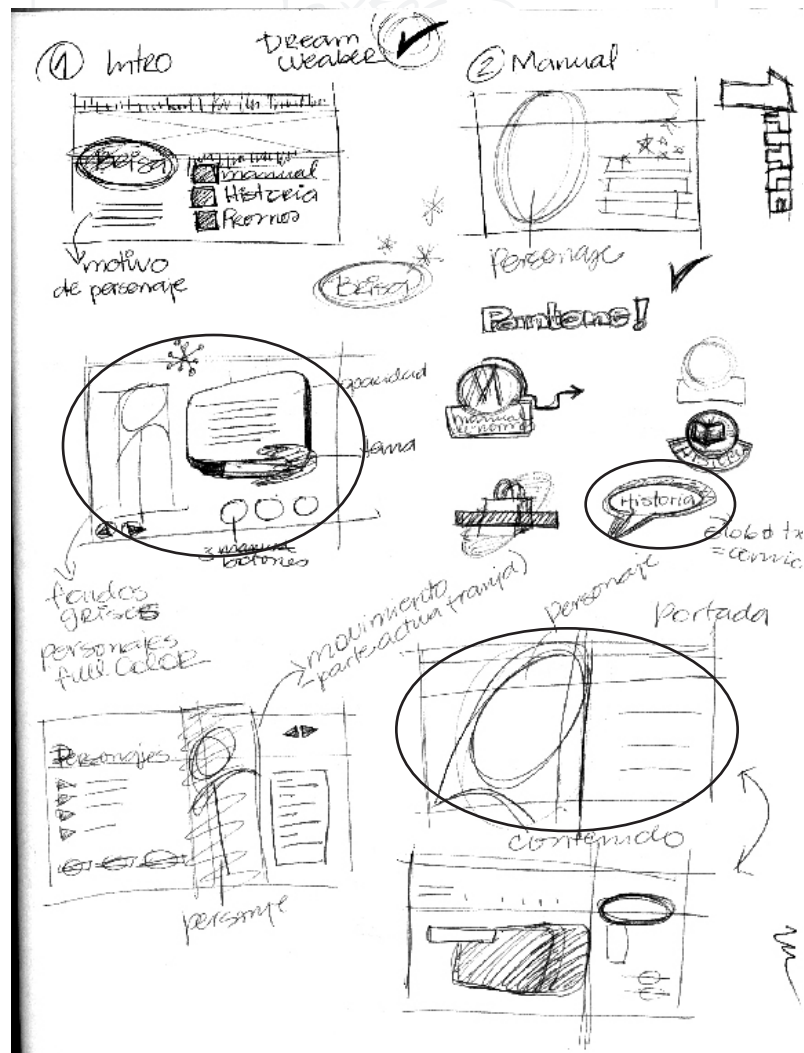 1 Intro
Dream
Weaber
2 Manual
Beisa
manual
Historia
Promos
motivo
de personaje
Beisa
personaje
Pantone!
opacidad
M
manual
tema
Historia
Globo tx
3 manual
botones
fondos
grises
personajes
full color
movimiento
-parte activa franja)
personaje
Portada
Personajes
contenido
persnje